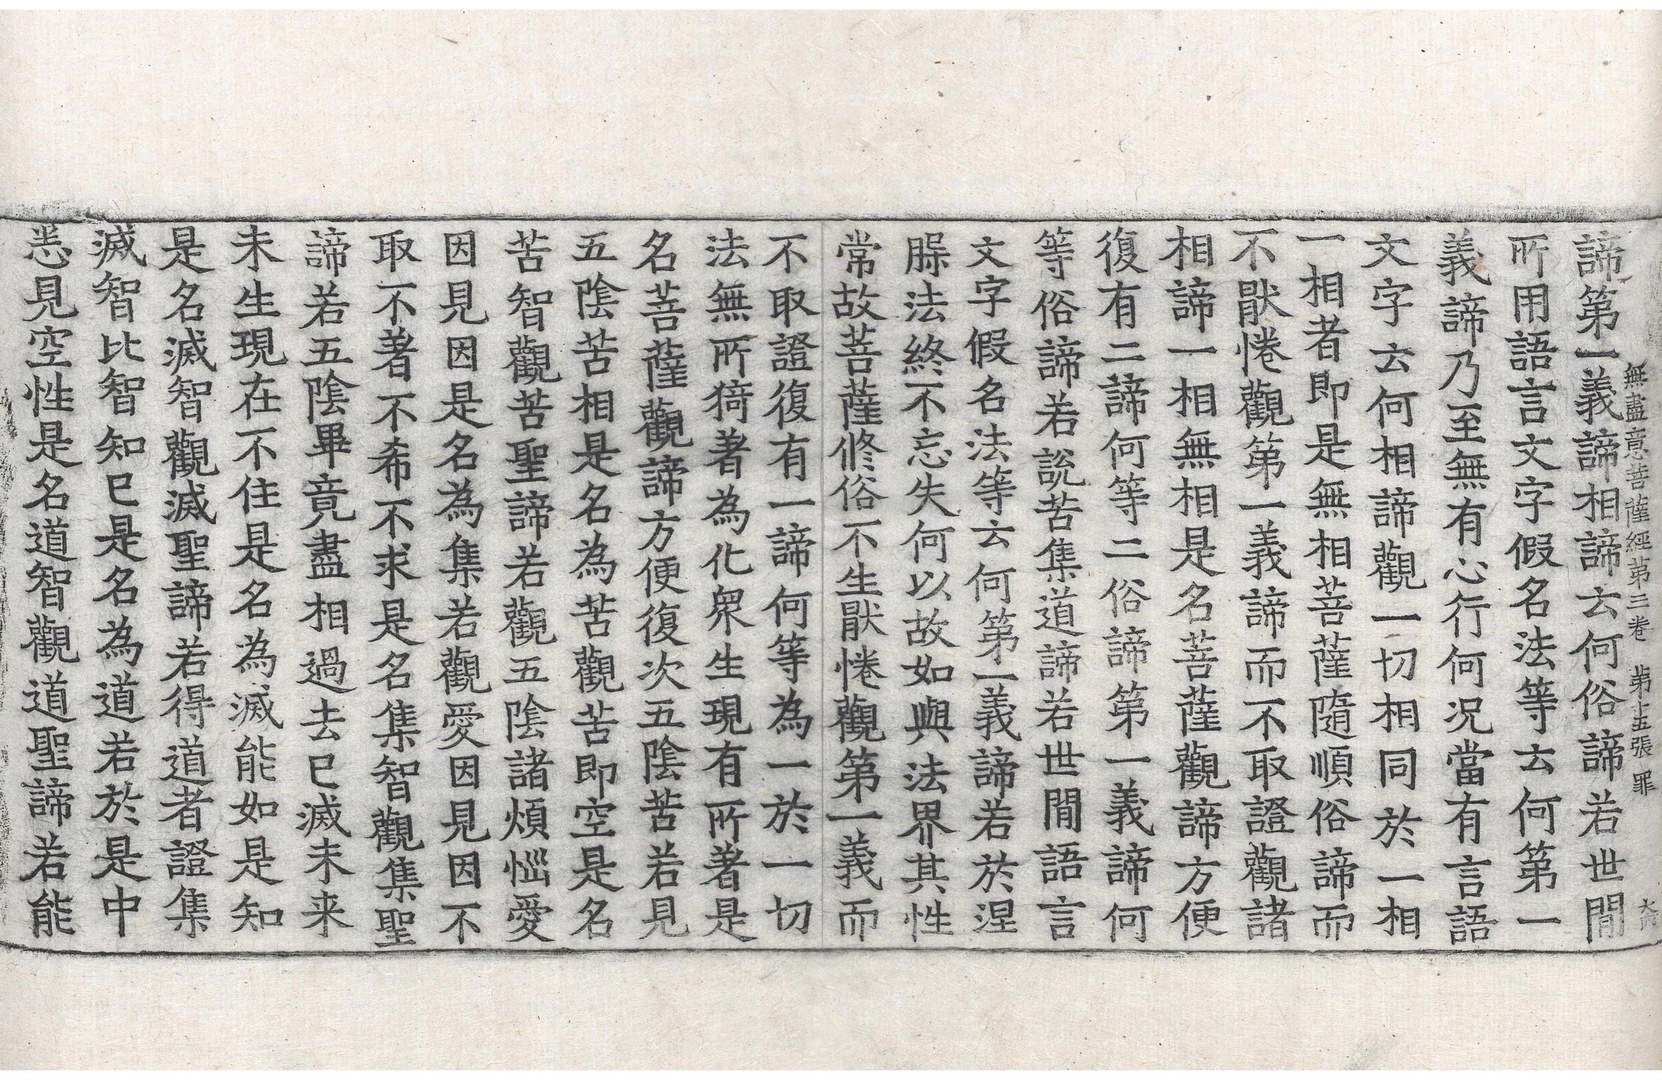 無盡意菩薩經第三卷 第十五張 罪
諦第一義諦相諦云何俗諦若世閒
所用語言文字假名法等云何第一
義諦乃至無有心行何况當有言語
文字云何相諦觀一切相同於一相
一相者即是無相菩薩隨順俗諦而
不猒惓觀第一義諦而不取證觀諸
相諦一相無相是名菩薩觀諦方便
復有二諦何等二俗諦第一義諦何
等俗諦若說苦集道諦若世閒語言
文字假名法等云何第一義諦若於涅
縣法終不忘失何以故如與法界其性
常故菩薩修俗不生猒惓觀第一義而
不取證復有一諦何等為一於一切
法無所猗著為化衆生現有所著是
名菩薩觀諦方便復次五陰苦若見
五陰苦相是名為苦觀苦即空是名
苦智觀苦聖諦若觀五陰諸煩惱愛
因見因是名為集若觀愛因見因不
取不著不希不求是名集智觀集聖
諦若五陰畢竟盡相過去已滅未来
未生現在不住是名為滅能如是知
是名滅智觀滅聖諦若得道者證集
滅智比智知已是名為道若於是中
悉見空性是名道智觀道聖諦若能